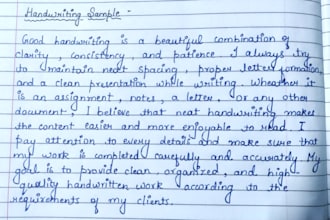 Handwriting Sample -
Good handwriting is a beautiful combination of
clarity, consistency, and patience. I always try
to maintain neat spacing, proper letter formation,
and a clean presentation while writing. Wheather it
is an assignment, notes, a letter, or any other
document, I believe that neat handwriting makes
the content easier and more enjoyable to read. I
pay attention to every detail and make sure that
my work is completed carefully and accurately. My
goal is to provide clean, organized, and high
quality handwritten work according to the
requirements of my clients.